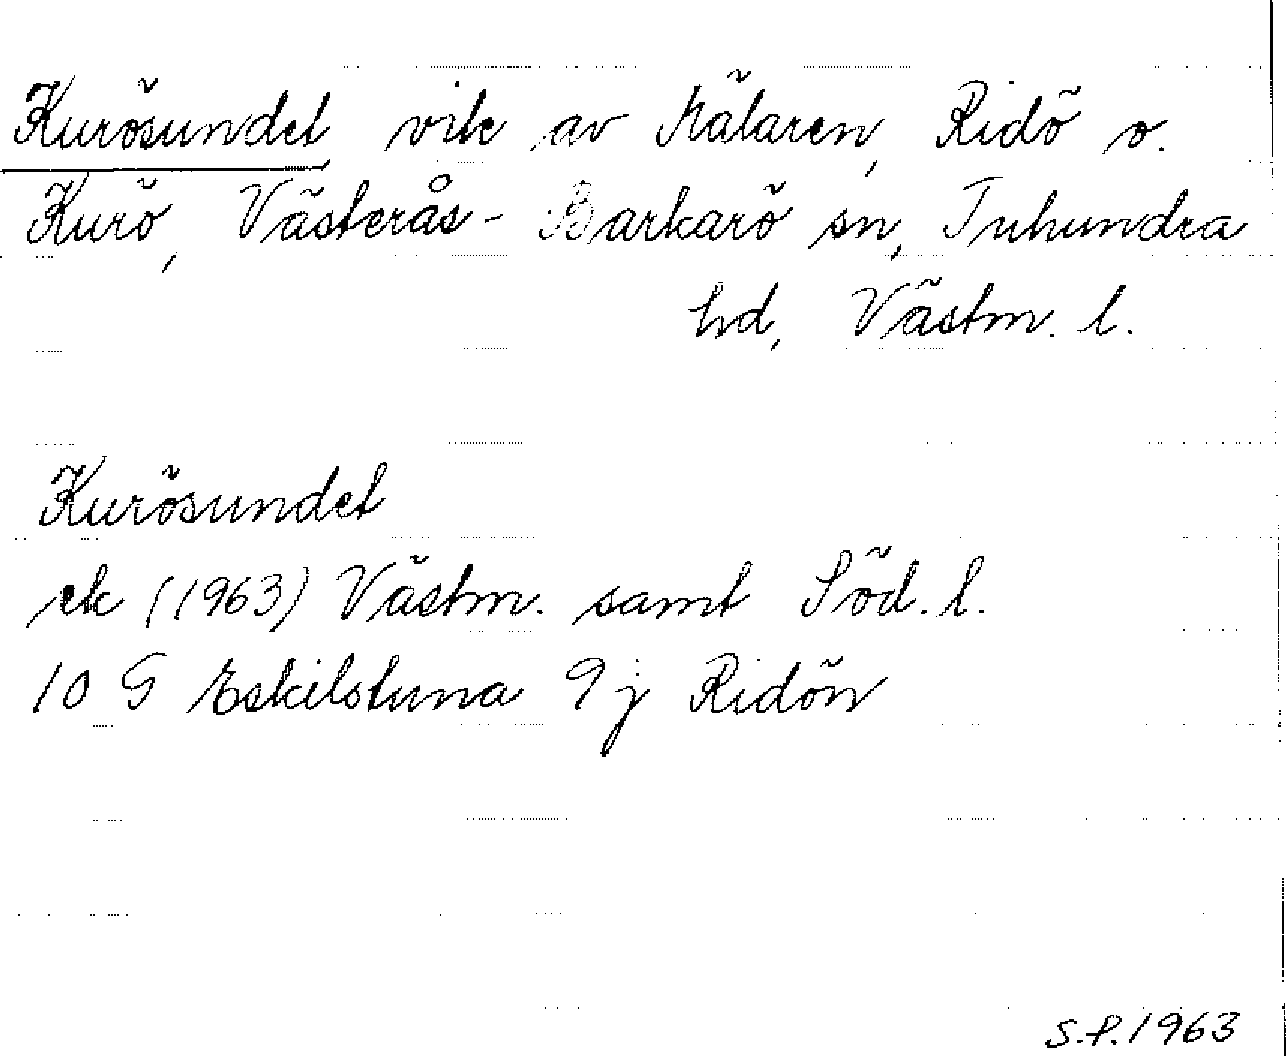 Kurösundet, vik av Mälaren, Ridö o.
Kurö, Västerås-Barkarö sn, Tuhundra
hd, Västm. l.
Kurösundet
ek (1963) Västm. samt Söd. l.
10 G Eskilstuna 9 j Ridön
S.P. 1963